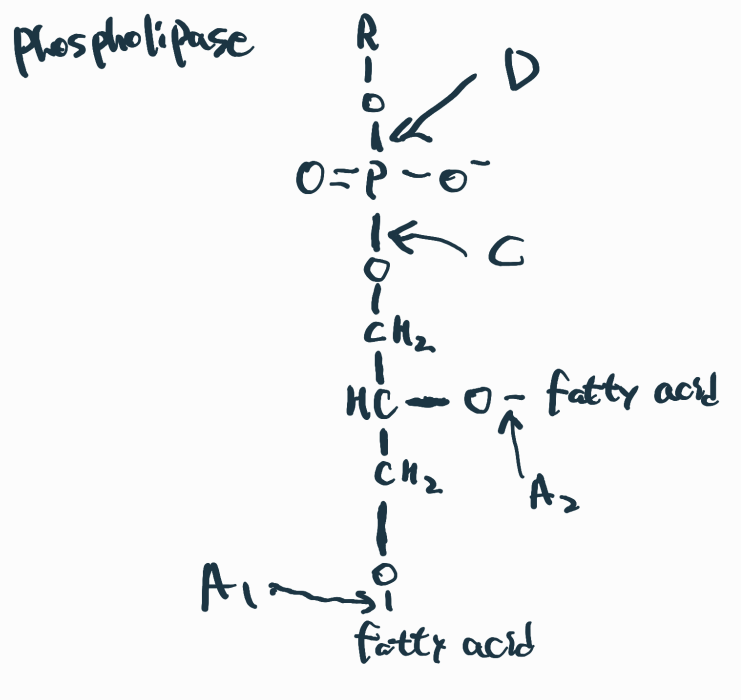 phospholipase
R
O
D
O=P-O⁻
C
O
CH₂
HC-O-fatty acid
CH₂
A₂
O
A₁
fatty acid